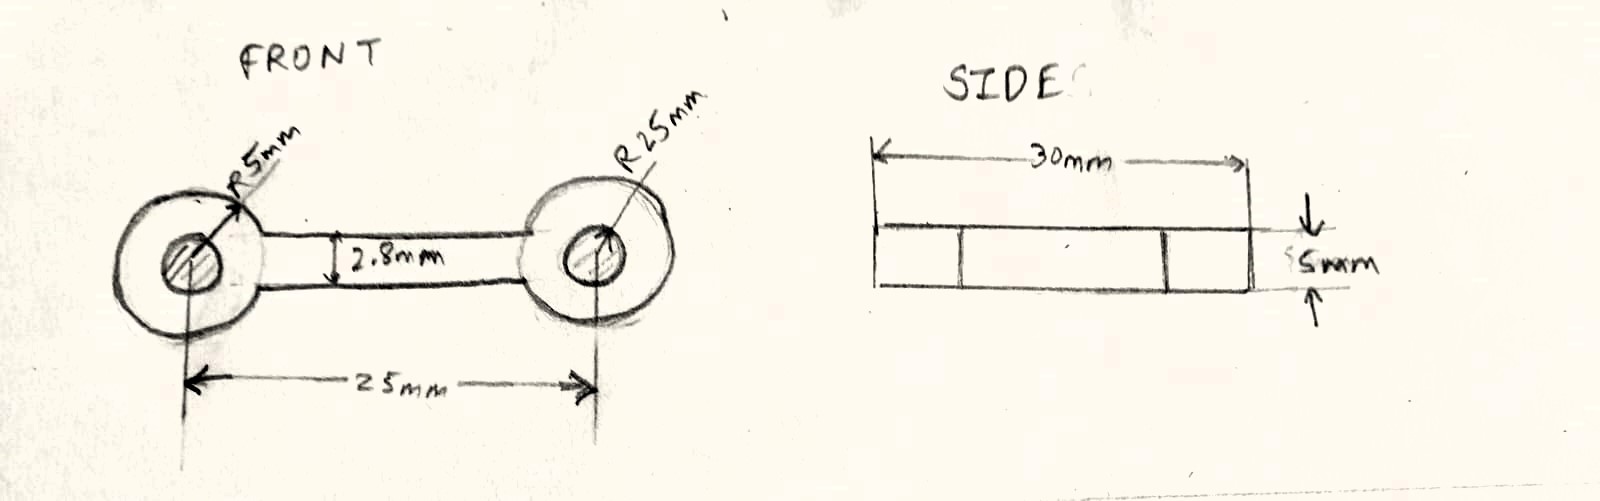 FRONT
R5mm
R25mm
2.8mm
25mm
SIDE
30mm
5mm